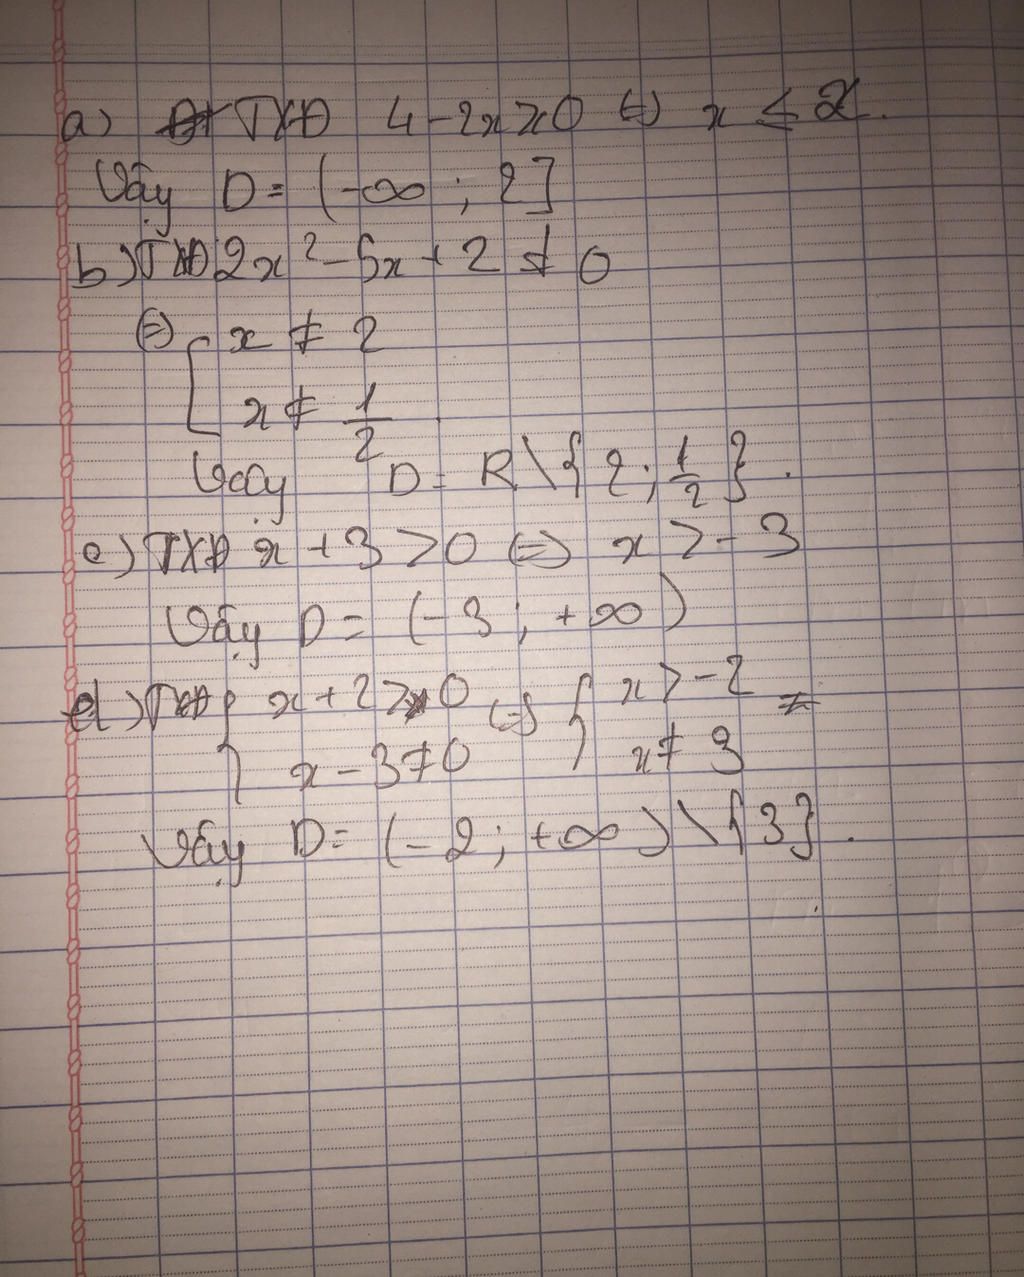 a) TXĐ 4 - 2x ≥ 0 ⇔ x ≤ 2.
Vậy D = (-∞ ; 2]
b) TXĐ 2x² - 5x + 2 ≠ 0
⇔ [ x ≠ 2
x ≠ 1/2 .
Vậy D = R \ { 2 ; 1/2 } .
c) TXĐ x + 3 > 0 ⇔ x > - 3
Vậy D = (- 3 ; + ∞ )
d) TXĐ { x + 2 > 0 ⇔ { x > - 2
x - 3 ≠ 0 x ≠ 3
Vậy D = (- 2 ; +∞ ) \ { 3 } .